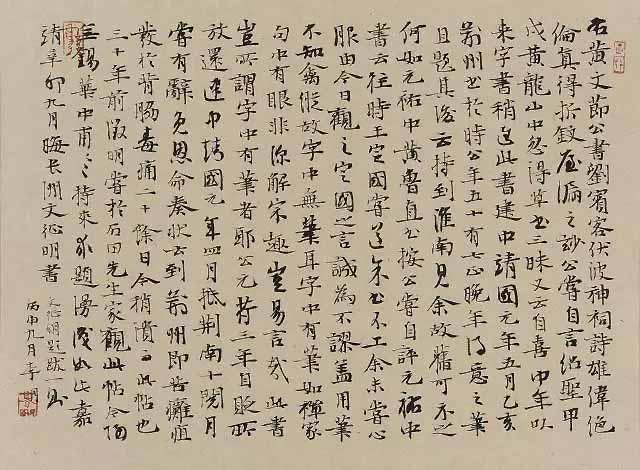 右黄文節公書劉賓客伏波神祠詩雄偉絶
倫真得折釵屋漏之妙公嘗自言紹聖甲
戌黄龍山中忽得草書三昧又云自喜中年以
来字書稍進此書建中靖國元年五月乙亥
荊州書於時公年五十有七正晚年得意之筆
且題其後云持到淮南見余故舊可示之
何如元祐中黄魯直書按公嘗自評元祐中
書云往時王定國嘗道余書不工余未嘗心
服由今日觀之定國之言誠為不謬盖用筆
不知禽縱故字中無筆耳字中有筆如禪家
句中有眼非深解宗趣豈易言哉此書
豈所謂字中有筆者耶公元符三年自貶所
放還建中靖國元年四月抵荆南十閲月
嘗有辭免恩命奏状云到荊州即苦癰疽
發於背脇毒痛二十餘日今稍潰此帖也
三十年前徵明嘗於石田先生家觀此帖今歸
無錫華中甫持來求題漫識如此嘉
靖辛卯九月晦長洲文徵明書
文徵明題跋一則
丙申九月李